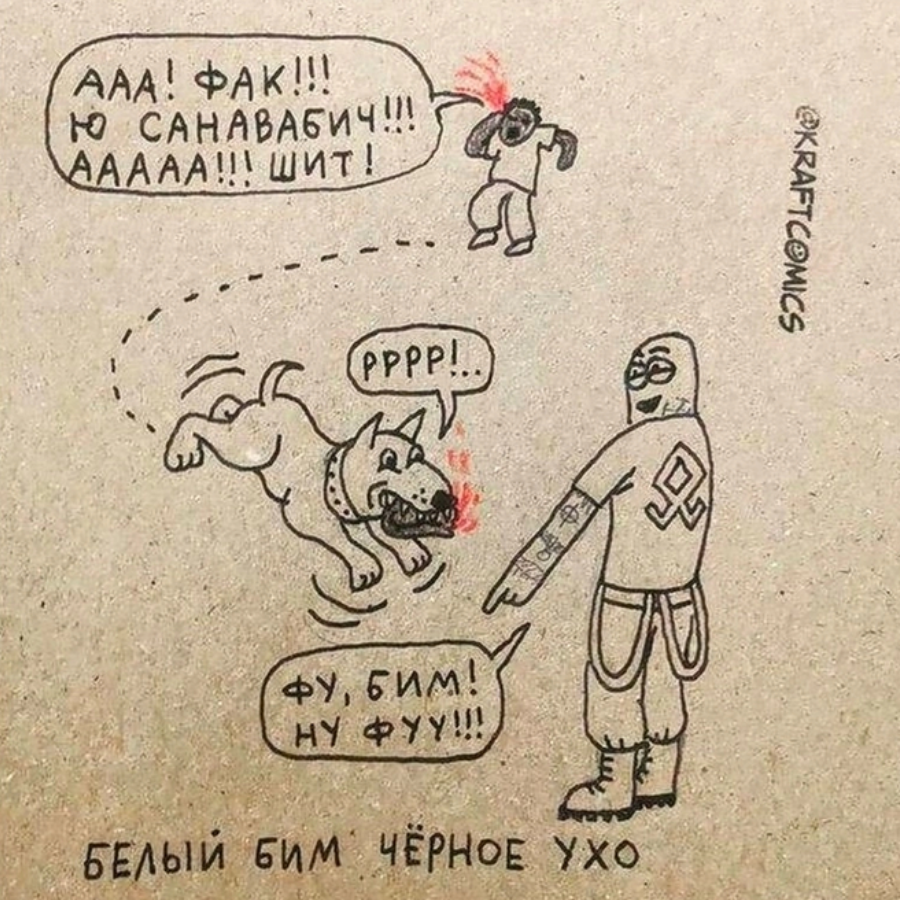 ААА! ФАК!!!
Ю САНАВАБИЧ!!!
ААААА!!! ШИТ!
@KRAFTCOMICS
РРРР!..
ФУ, БИМ!
НУ ФУУ!!!
БЕЛЫЙ БИМ ЧЁРНОЕ УХО